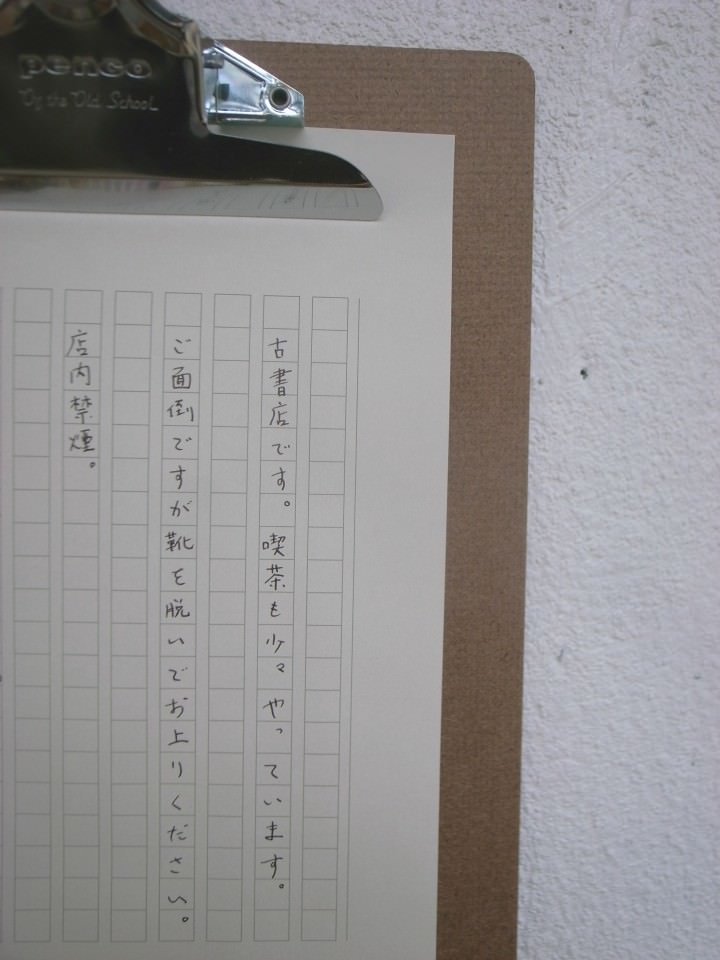 penco
Of the Old School
古書店です。喫茶も少々やっています。
ご面倒ですが靴を脱いでお上りください。
店内禁煙。